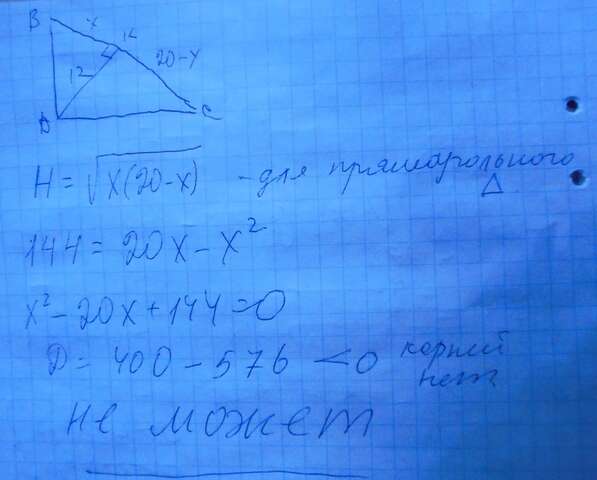 B
x
K
12
20-x
A
C
H = √x(20-x) - для прямоугольного Δ
144 = 20x - x²
x² - 20x + 144 = 0
D = 400 - 576 < 0 корней нет
не может